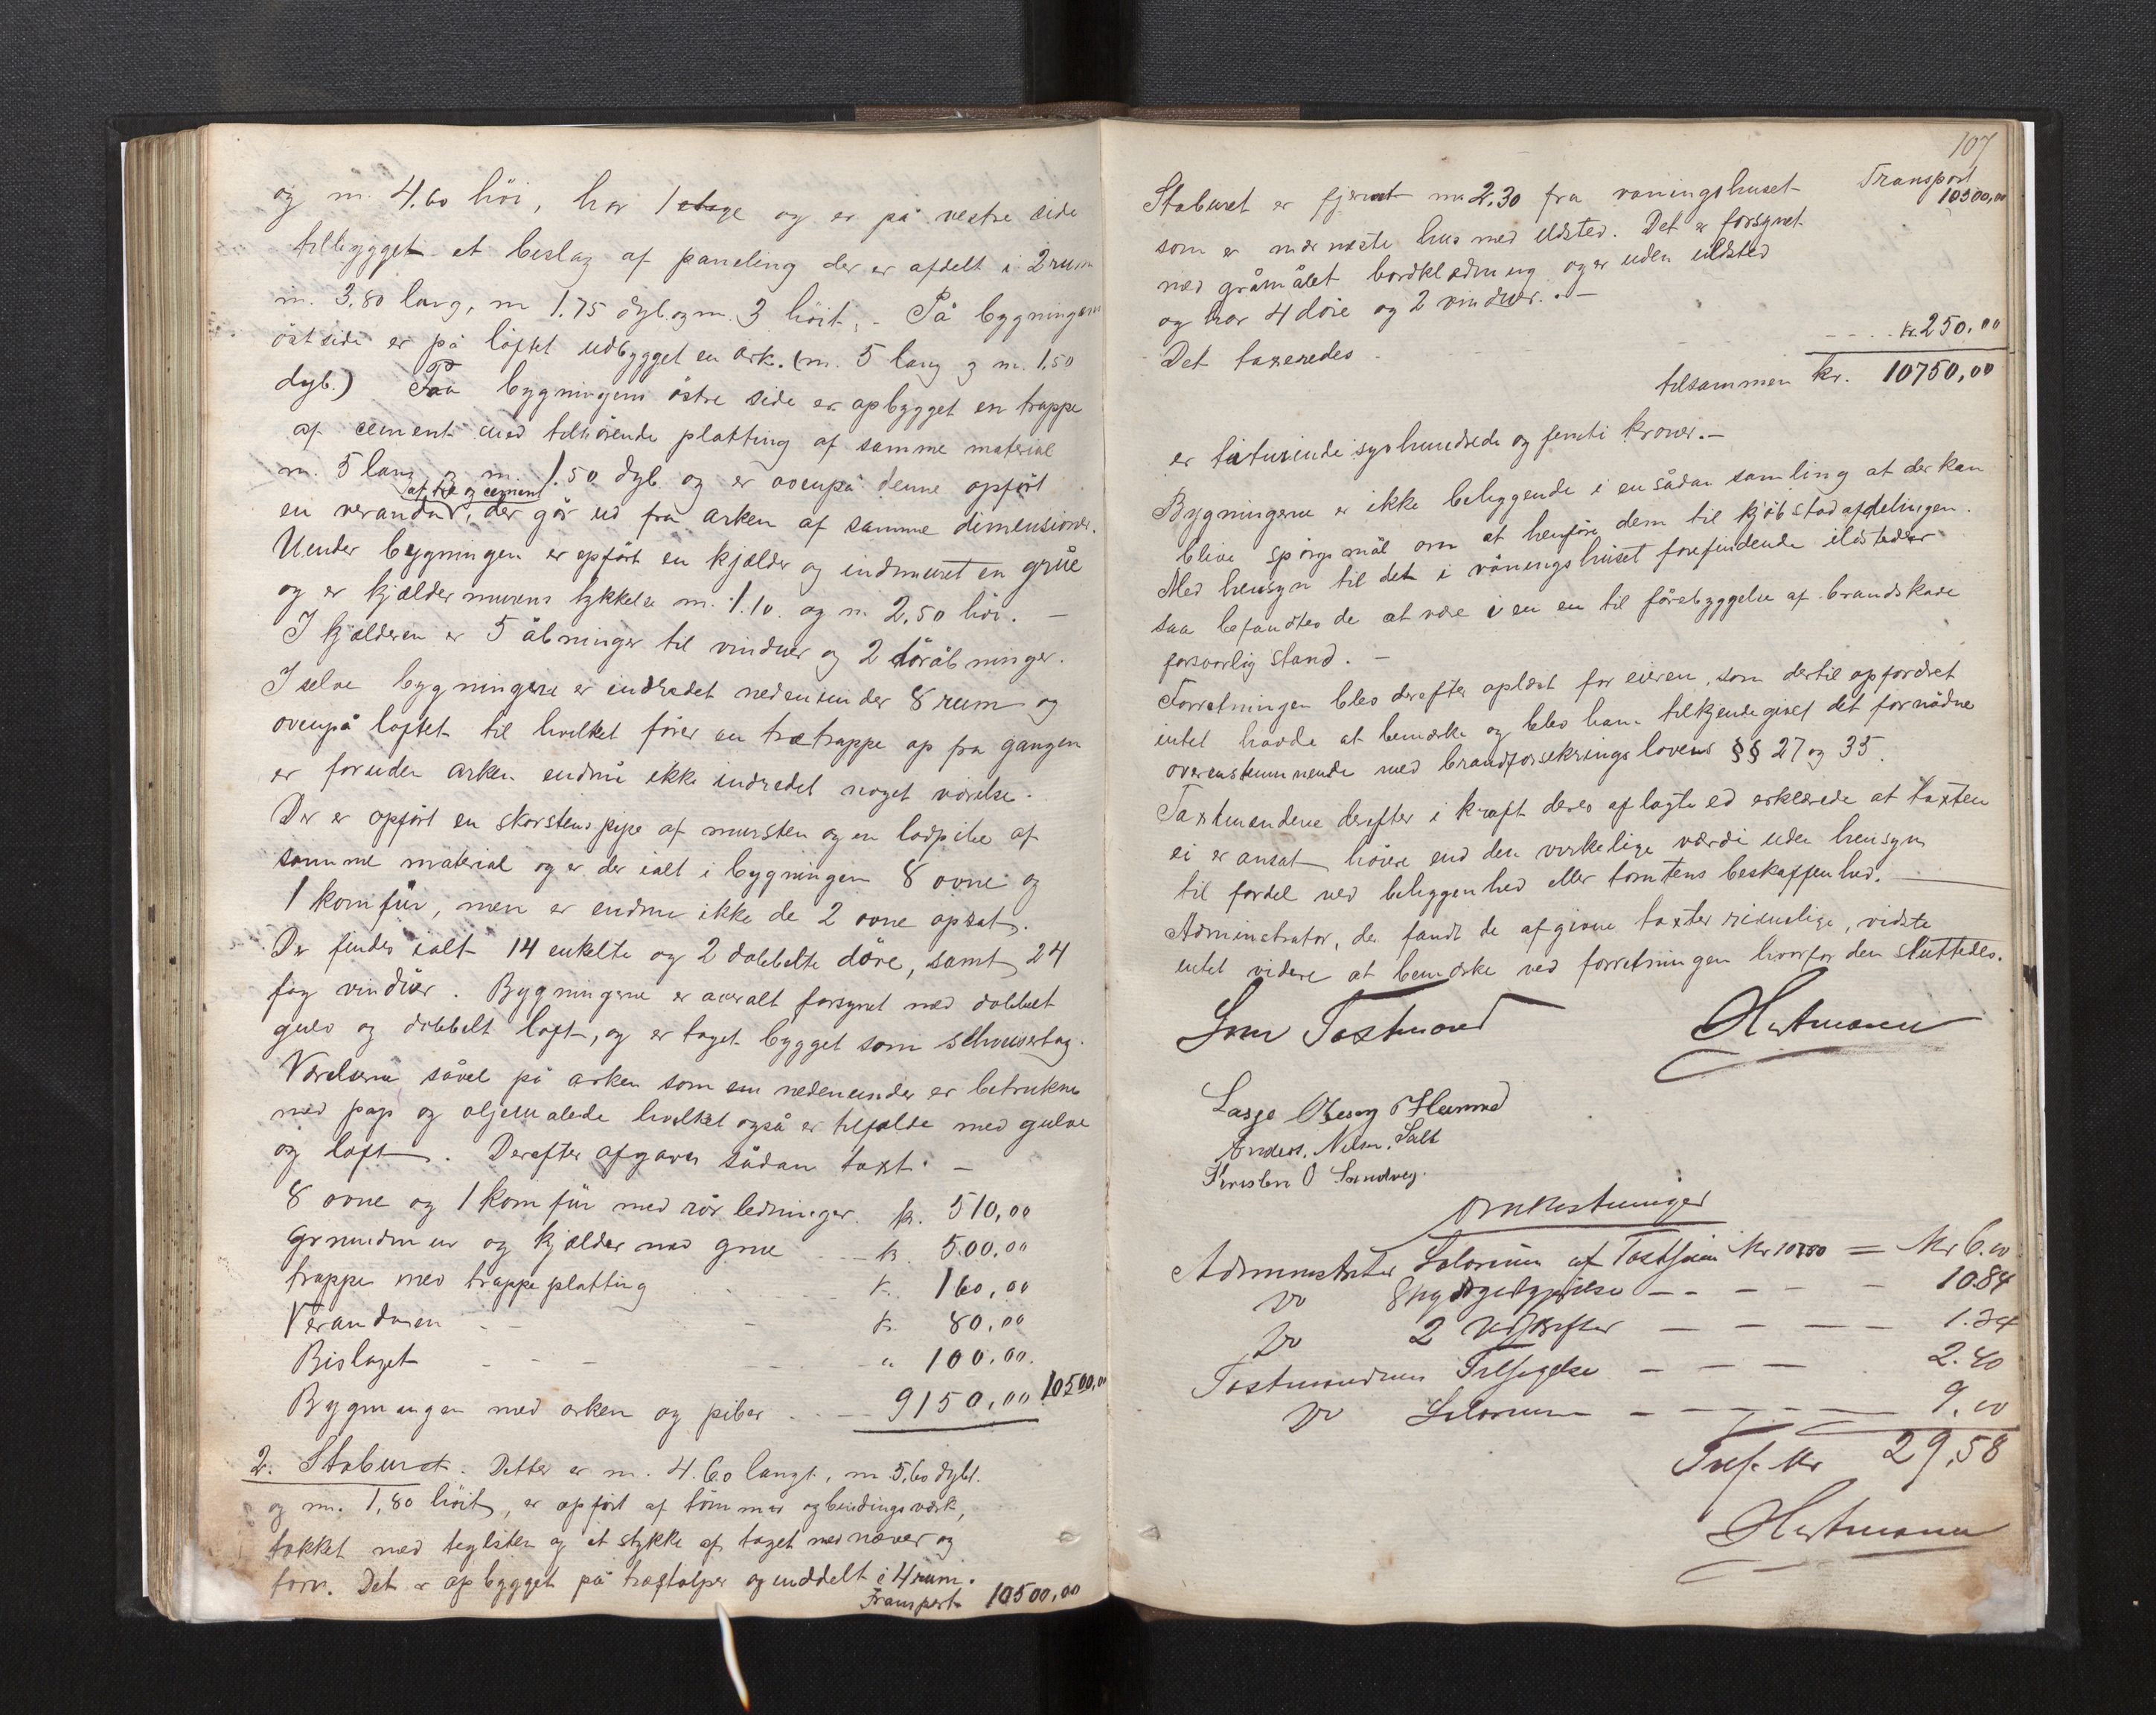 og m. 4.60 höi, har 1 etage og er på vestre side
tilbygget et beslag af paneling der er afdelt i 2 rum
m. 3,80 lang, m 1.75 dyb. og m. 3 höit. - På bygningens
östside er på löftet udbygget en ark. (m. 5 lang og m. 1,50
dyb.) Paa bygningens östre side er opbygget en trappe
af cement med tilhörende platting af samme material
m. 5 lang og m. 1.50 dyb og er ovenpå denne opfört
af træ og cement
en verandar, der går ud fra arken af samme dimensioner.
Uunder bygningen er opfört en kjælder og indmuret en grüe
og er kjældermurens tykkelse m. 1.10. og m 2,50 höi. -
I kjælderen er 5 åbninger til vinduer og 2 döråbninger.
I selve bygningene er indredet nedenunder 8 rum og
ovenpå löftet til hvilket förer en trætrappe op fra gangen
er foruden arken endnu ikke indredet noget værelse.
Der er opfört en skorstenspipe af mursten og en lodpibe af
samme material og er der ialt i bygningen 8 ovne og
1 komfür, men er endnu ikke de 2 ovne opsat.
Der findes ialt 14 enkelte og 2 dobbelte döre, samt 24
fag vinduer. Bygningene er overalt forsynet med dobbelt
gulv og dobbelt loft, og er taget bygget som schweisertag.
Værelserne såvel på arken som en nedenunder er betrukne
med pap og oljemalede hvilket også er tilfælde med gulve
og loft. Derefter afgaves sådan taxt. -
8 ovne og 1 komfür med rörledninger. kr. 510,00
Grundmur og kjælder med grue - kr 500.00
trappe med trappeplatting k. 160,00
Verandaen - - - k. 80.00
Bislaget - - - " 100.00.
Bygningen med arken og piber. - 9150,00 10500,00
2. Staburet. Dette er m. 4.60 langt, m 5,60 dybt.
og m. 1,80 höit, er opfört af tömmer og bindingsværk,
tækket med teglsten og et stykke af taget med næver og
torv. Det er opbygget på træstolper og inddelt i 4 rum.
Transport 10500,00
107
Transport
10500,00
Staburet er fjernet m 2,30 fra vaningshuset
som er nærmeste hus med ildsted. Det er forsynet
med gråmålet bordklædning og er uden ildsted
og har 4 döre og 2 vinduer. . -
Det taxeredes - - - kr. 250.00
tilsammen kr. 10750,00
er titusinde syvhundrede og femti kroner. -
Bygningerne er ikke beliggende i en sådan samling at der kan
blive spörgsmål om at henföre dem til kjöbstadafdelingen.
Med hensyn til det i våningshuset forefindende ildsteder
saa befandtes de at være i en en til forebyggelse af brandskade
forsvarlig stand. -
Forretningen blev derefter oplæst for eieren, som dertil opfordret
intet havde at bemærke og blev ham tilkjendegivet det fornödne
overensstemmende med brandforsekringslovens §§ 27 og 35.
Taxtmendene derefter i kraft deres aflagte ed erklærede at taxten
ei er ansat höiere end den verkelige værdi uden hensyn
til fordel ved beliggenhed eller tomtens beskaffenhed. -
Administrator, der fandt de afgivne taxter rimelige, vidste
intet videre at bemærke ved forretningen hvorfor den sluttedes.
Som Taxtmænd Hartmann
Lasse
Anders. Nilsen. Salt
Kristen O Sandveg.
Omkostninger
Administrator Salarium af Taxtsum Kr 10750 = Kr 6.00
Do Skydsgodtgjörelse - - - - 10.84
Do 2 Udskrifter - - - - 1.34
Taxtmændenes Tilsigelse - - - 2.40
Do Salarium - - - - 9.00
Tils. Kr 29,58
Hartmann